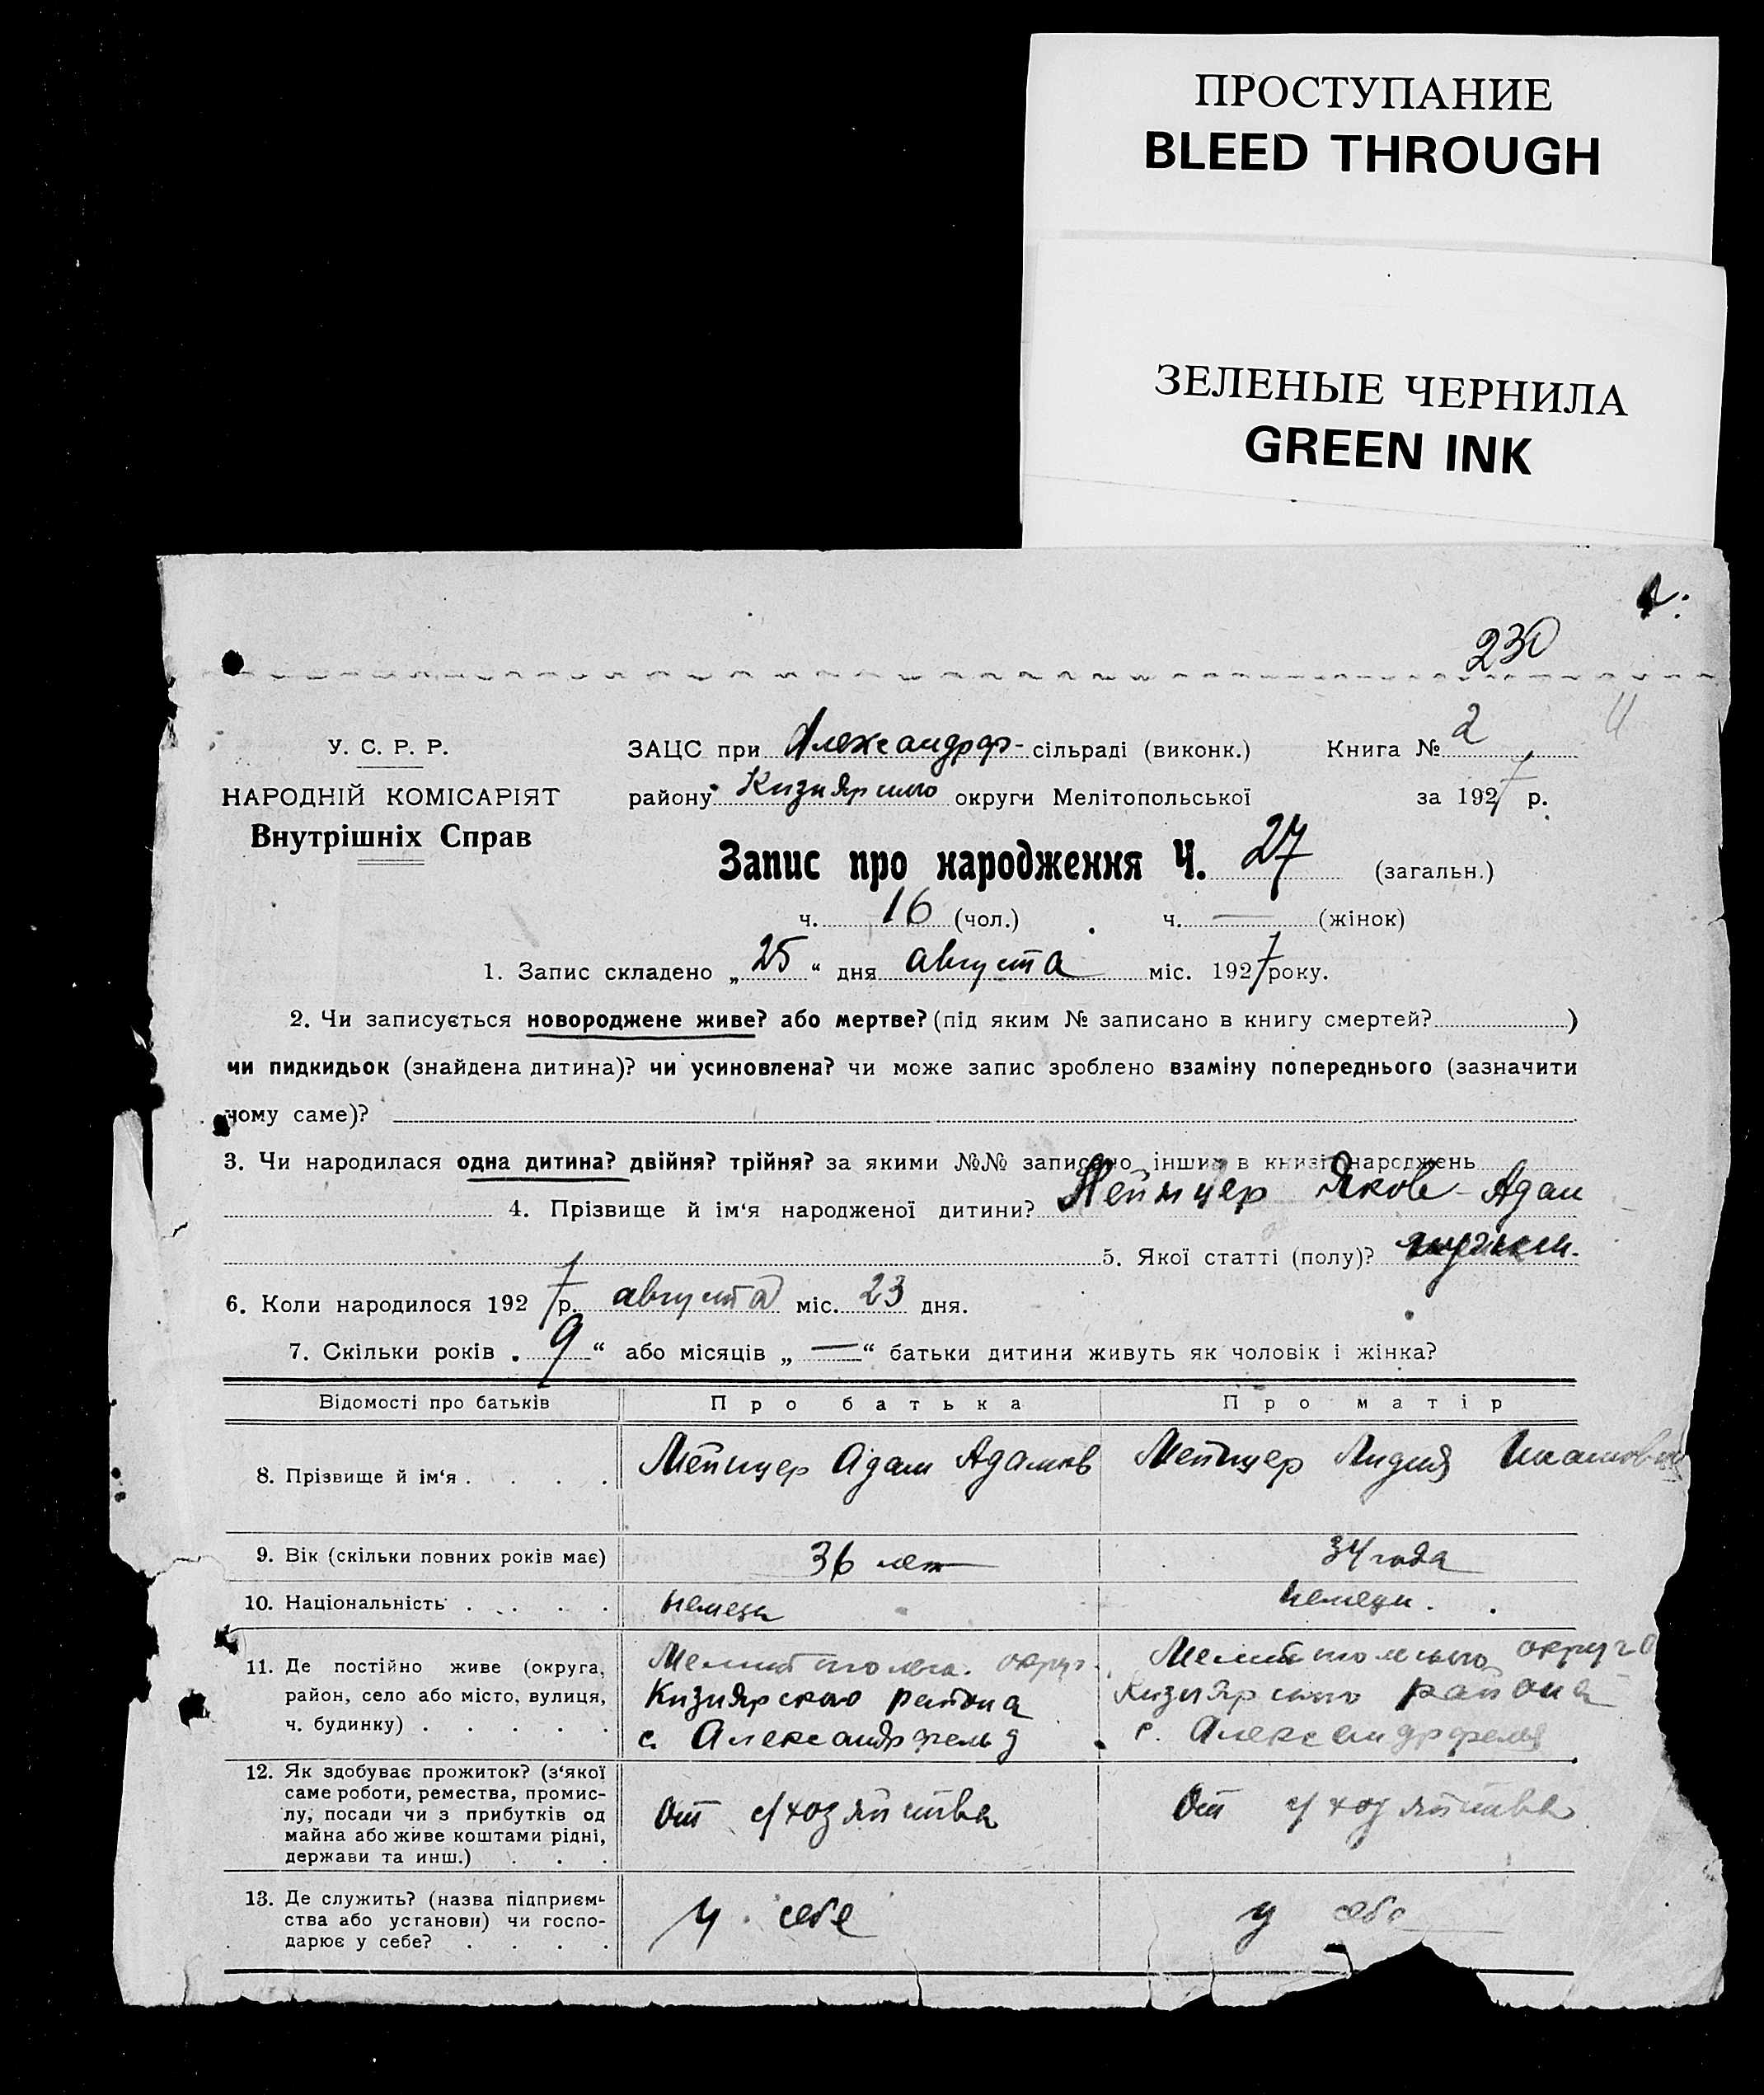 ПРОСТУПАНИЕ
BLEED THROUGH
ЗЕЛЕНЫЕ ЧЕРНИЛА
GREEN INK
230
У. С. Р. Р.
НАРОДНІЙ КОМІСАРІЯТ
Внутрішніх Справ
ЗАЦС при Александрф- сільраді (виконк.) Книга № 2
району Кизиярского округи Мелітопольської за 1927 р.
Запис про народження Ч. 27 (загальн.)
ч. 16 (чол.) ч. — (жінок)
1. Запис складено „ 25 “ дня августа міс. 1927 року.
2. Чи записується новороджене живе? або мертве? (під яким № записано в книгу смертей? )
чи пидкидьок (знайдена дитина)? чи усиновлена? чи може запис зроблено взаміну попереднього (зазначити
чому саме)?
3. Чи народилася одна дитина? двійня? трійня? за якими №№ записано інших в книзі народжень
4. Прізвище й ім‘я народженої дитини? Мейнцер Яков-Адам
5. Якої статті (полу)? мужск.
6. Коли народилося 1927 р. августа міс. 23 дня.
7. Скільки років „ 9 “ або місяців „ — “ батьки дитини живуть як чоловік і жінка?
Відомості про батьків Про батька Про матір
8. Прізвище й ім‘я . . . . Мейнцер Адам Адамов Мейнцер Лидия
9. Вік (скільки повних років має) 36 лет 34 года
10. Національність . . . . немец немецк.
11. Де постійно живе (округа,
район, село або місто, вулиця,
ч. будинку) . . . . .
Мелитополск. округ.
Кизиярского района
с. Александрфельд
Мелитопольского округа
Кизиярского района
с. Александрфельд
12. Як здобуває прожиток? (з‘якої
саме роботи, ремества, промис-
лу, посади чи з прибутків од
майна або живе коштами рідні,
держави та инш.) . . .
От с/хозяйства От с/хозяйства
13. Де служить? (назва підприєм-
ства або установи) чи госпо-
дарює у себе? . . . .
у себе у себе